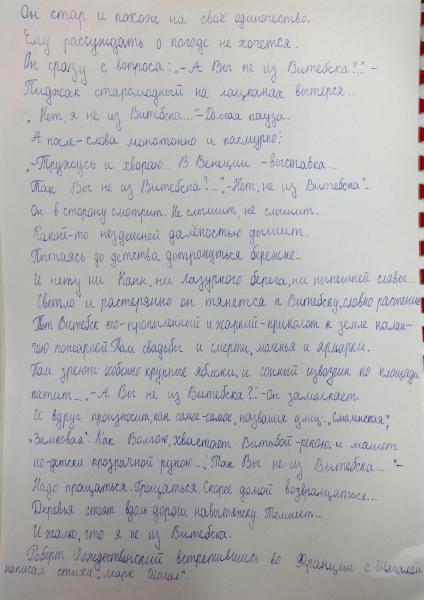 Он стар и похож на своё одиночество.
Ему рассуждать о погоде не хочется.
Он сразу с вопроса: „-А Вы не из Витебска?.." -
Пиджак старомодный на лацканах вытерся...
„Нет, я не из Витебска..."-Долгая пауза.
А после-слова монотонно и пасмурно:
„-Тружусь и хвораю... В Венеции -выставка...
Так Вы не из Витебска?..." „-Нет, не из Витебска"..
Он в сторону смотрит. Не слышит, не слышит.
Какой-то нездешней далёкостью дышит.
Пытаясь до детства дотронуться бережно..
И нету ни Канн, ни Лазурного берега, ни нынешней славы...
Светло и растерянно он тянется к Витебску, словно растение
Тот Витебск его-пропыленный и жаркий-приколот к земле калан-
чою пожарной. Там свадьбы и смерти, моленья и ярмарки.
Там зреют особенно крупные яблоки, и сонный извозчик по площади
катит... „-А Вы не из Витебска?.."-Он замолкает.
И вдруг произносит, как самое-самое, названия улиц: „Смоленская",
„Замковая". Как Волгою, хвастает Витьбой-рекою. и машет
по-детски прозрачной рукою... „Так Вы не из Витебска..."-
Надо прощаться. Прощаться. Скорее домой возвращаться...
Деревья стоят вдоль дороги навытяжку. Темнеет...
И жалко, что я не из Витебска.
Роберт Рождественский встретившись во Франции с Шагалом
написал стихи „Марк Шагал".